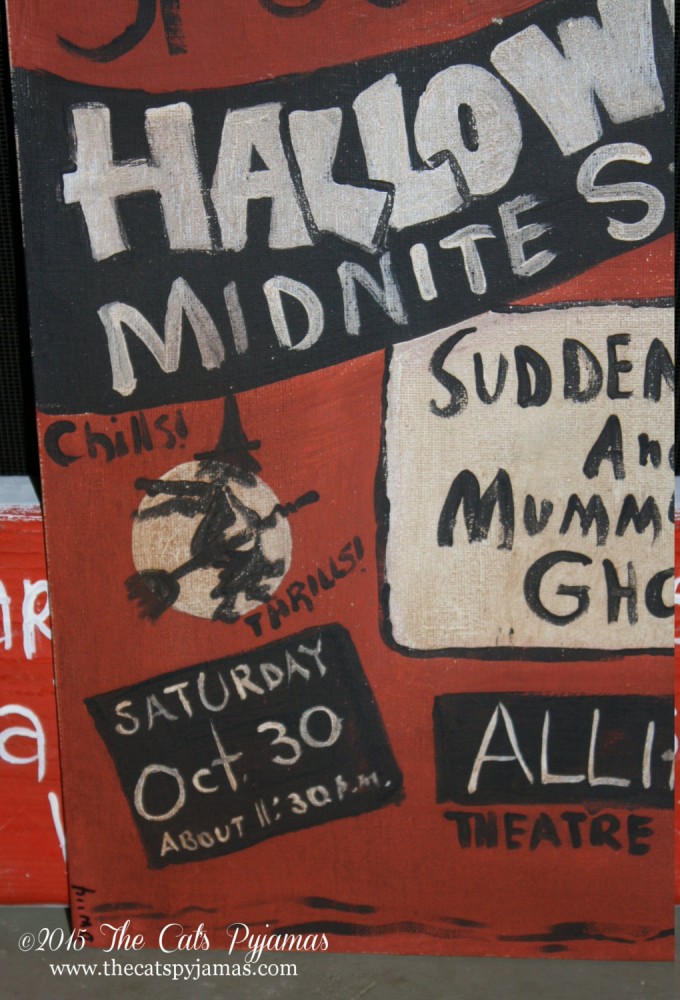 HALLOW
MIDNITE S
Chills!
SUDDEN
And
MUMMY
GHO
THRILLS!
SATURDAY
Oct. 30
ABOUT 11:30 P.M.
ALLI
THEATRE
©2015 The Cats Pyjamas
www.thecatspyjamas.com